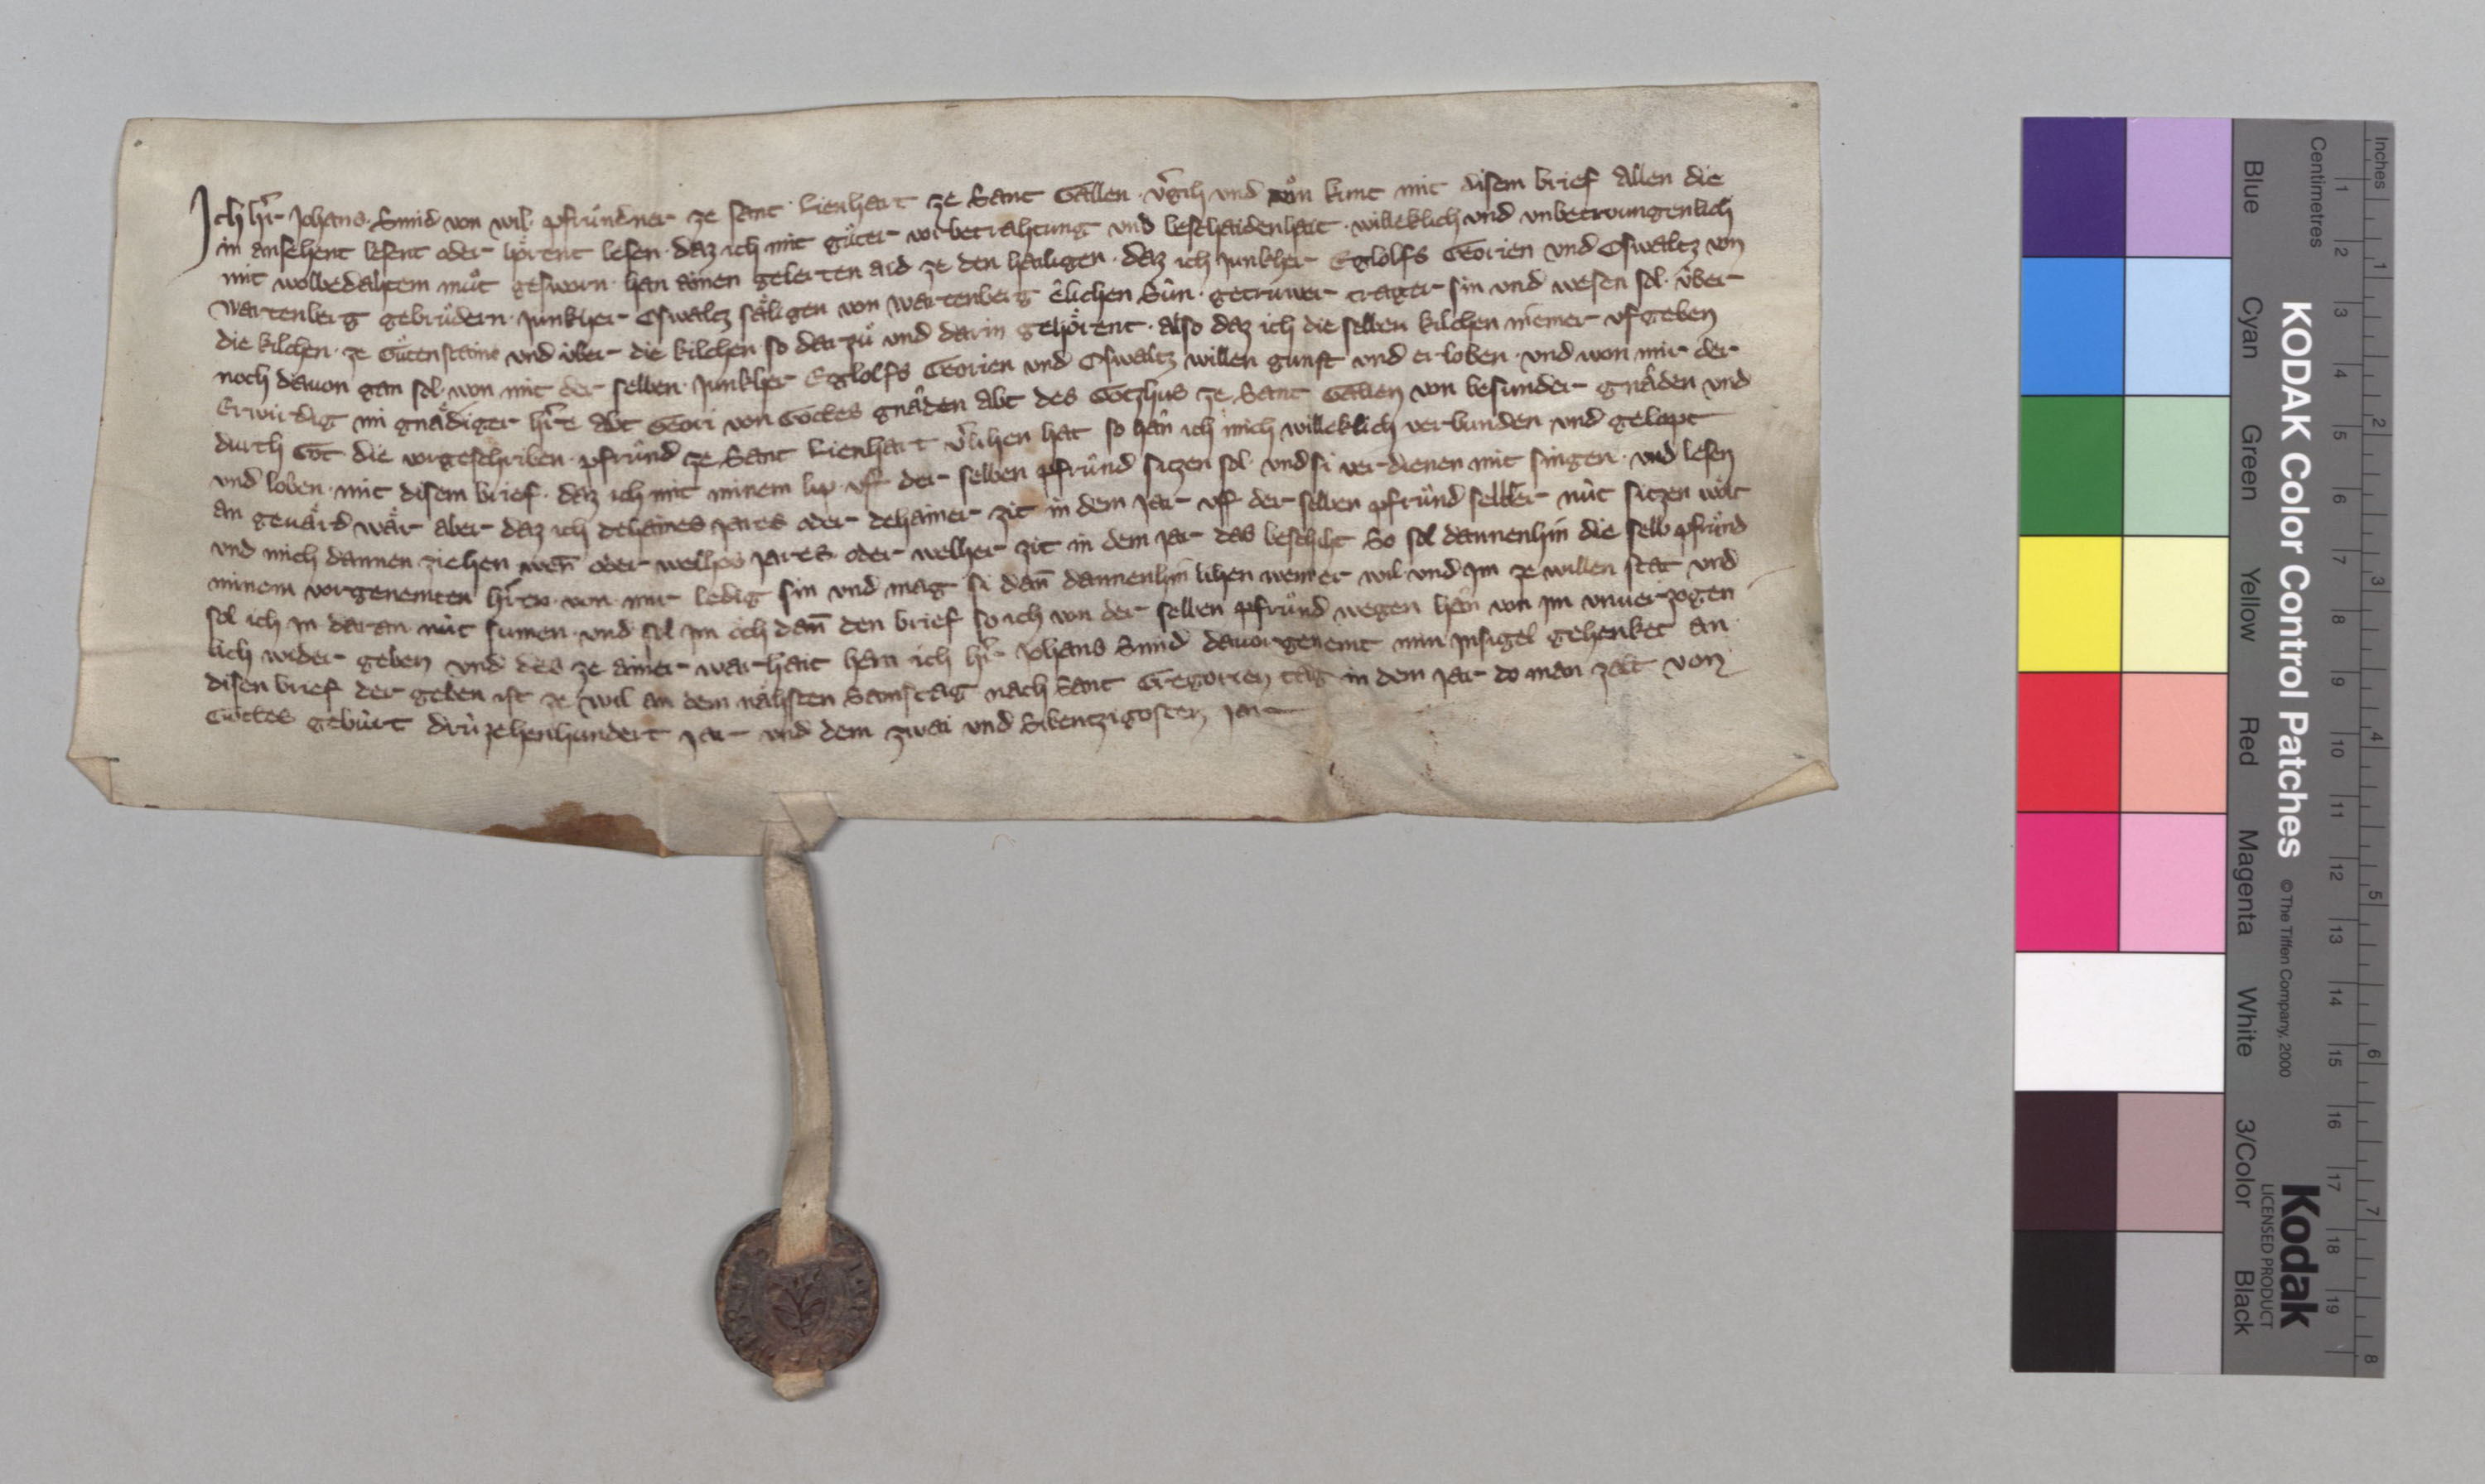 Ich hr̄ Johans Smid von wil pfrůndner ze sant Lienhart ze Sant Gallen v̄gih und tůn kunt mit disem brief allen die
in ansehent lesent oder hörent lesen daz ich mit gůter vorbetrahtung und beschaidenhait willeklich und unbetwungenlich
mit wolbedahtem můt gesworn han ainen gelerten aid ze den hailigen daz ich Junkher Eglolfs Georien und Oswaltz von
wartenberg gebrůdern Junkher Oswaltz säligen von wartenberg êlichen Sûn getrúwer trager sin und wesen sol úber
die kilchen ze Gůtenstaine und úber die kilchen so darzů und darin gehörent also daz ich die selben kilchen niemer ufgeben
noch dauon gan sol won mit der selben Junkher Eglolfs Georien und Oswaltz willen gunst und erloben und won mir der
Erwirdig mi gnädiger hr̄re abt Geori von Gottes gnâden abt des Gotzhus ze Sant Gallen von besunder gnâden und
durch Got die vorgeschriben pfrůnd ze Sant Lienhart v̄lihen hat so hân ich mich willeklich verbunden und gelopt
und loben mit disem brief daz ich mit minem lip uff der selben pfrůnd sitzen sol und si verdienen mit singen und lesen
an geuärd wär aber daz ich dehaines Jares oder dehainer zit in dem Jar uff der selben pfrůnd selber nút sitzen wölt
und mich dannen ziehen wen̄ oder welhes Jares oder welher zit in dem Jar das beschiht So sol dannenhin die selb pfrůnd
minem vorgenemten hr̄ren von mir ledig sin und mag si dan̄ dannenhin lihen wem er wil und Im ze willen stat und
sol ich In daran nút sumen und sol Im och dan̄ den brief so ich von der selben pfrůnd wegen hân von Im unuerzogen
lich wider geben und des ze ainer warhait han ich hr̄ Johans Smid dauorgenemt min Insigel gehenket an
disen brief der geben ist ze wil an dem nähsten Samstag nach Sant Gregorien tag in dem Jar do man zalt von
Gottes gebúrt drúzehenhundert Jar und dem zwai und Sibentzigosten Jar
KODAK Color Control Patches
© The Tiffen Company, 2000
Kodak
LICENSED PRODUCT
Inches
1 2 3 4 5 6 7 8
Centimetres
1 2 3 4 5 6 7 8 9 10 11 12 13 14 15 16 17 18 19
Blue
Cyan
Green
Yellow
Red
Magenta
White
3/Color
Black